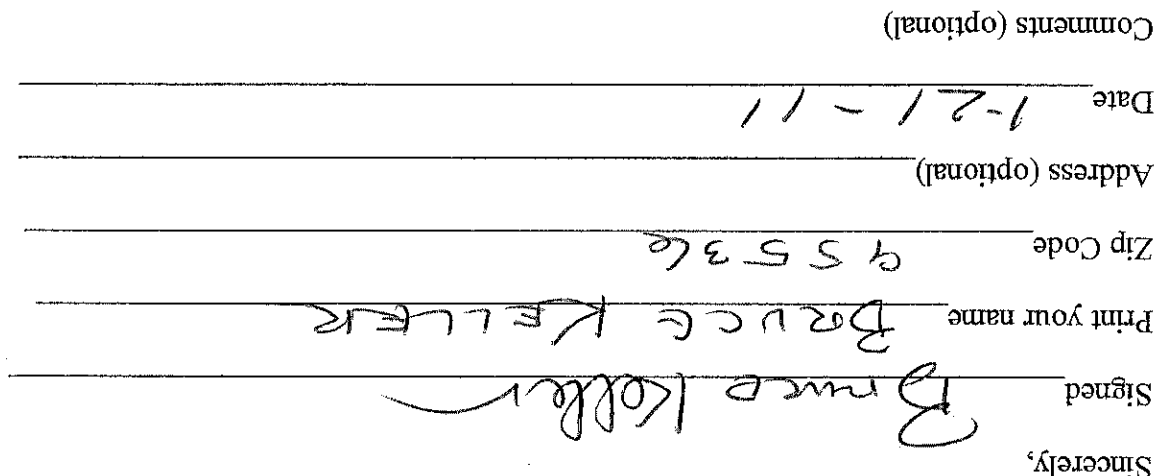 Sincerely,
Signed Bruce Keller
Print your name BRUCE KELLER
Zip Code 95536
Address (optional)
Date 1-21-11
Comments (optional)